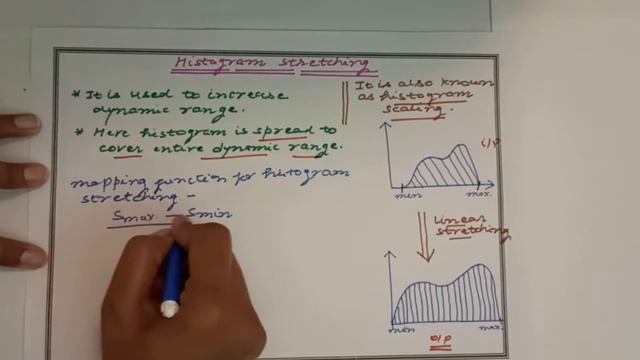 Histogram stretching
* It is used to increase
dynamic range.
* Here histogram is spread to
cover entire dynamic range.
mapping function for histogram
stretching -
Smax - Smin
It is also known
as histogram
scaling.
i/p
min max.
Linear
stretching
min max.
o/p